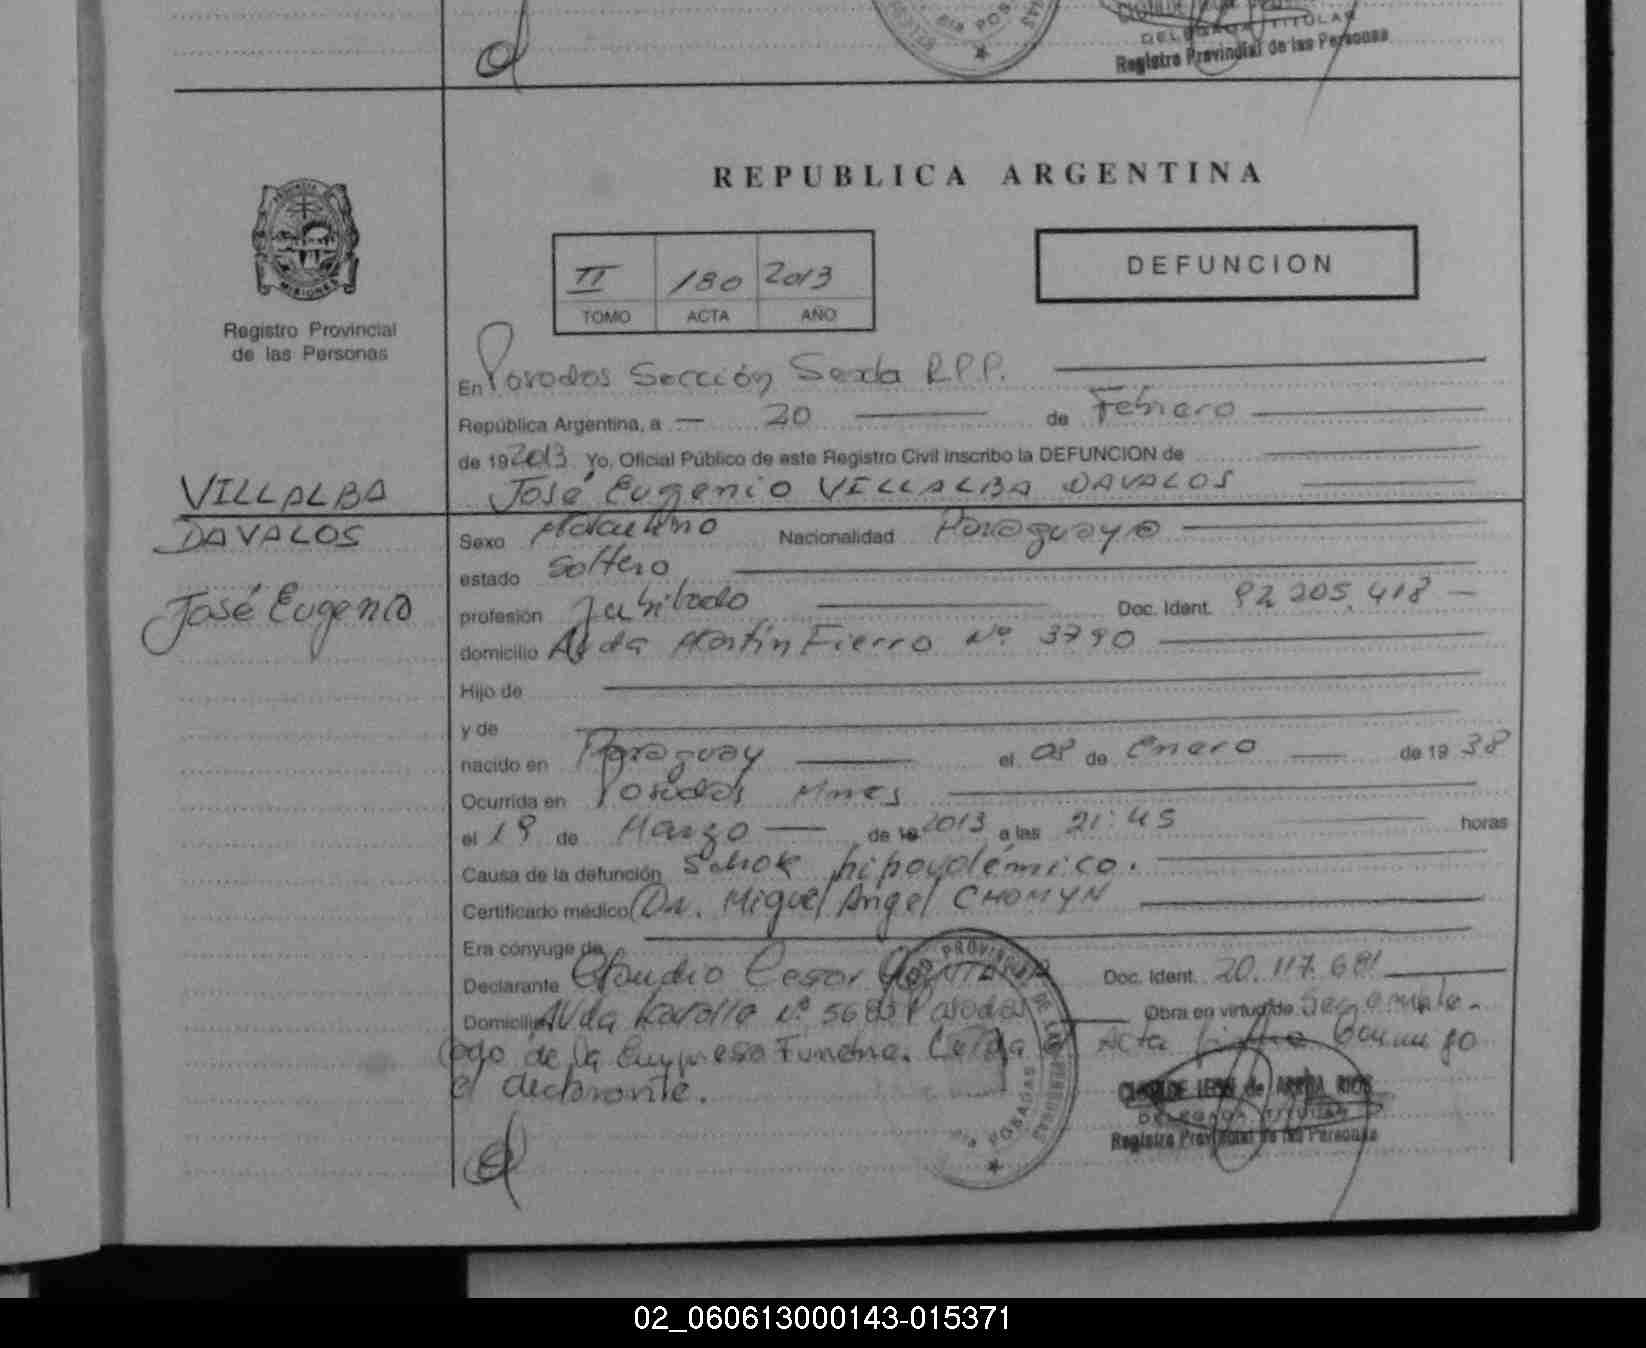 DELEGADA TITULAR
Registro Provincial de las Personas
POSADAS
REPUBLICA ARGENTINA
PROVINCIA
MISIONES
Registro Provincial
de las Personas
II 180 2013
TOMO ACTA AÑO
DEFUNCION
En Posadas Sección Sexta R.P.P.
República Argentina, a 20 de Febrero
de 19 2013 Yo, Oficial Público de este Registro Civil inscribo la DEFUNCION de
José Eugenio VILLALBA DAVALOS
VILLALBA
DAVALOS
José Eugenio
Sexo Masculino Nacionalidad Paraguaya
estado Soltero
profesión Jubilado Doc. Ident. 92.205.418
domicilio Avda Martín Fierro Nº 3790
Hijo de
y de
nacido en Paraguay el 08 de Enero de 19 38
Ocurrida en Posadas Mnes
el 19 de Marzo de 19 2013 a las 21:45 horas
Causa de la defunción Schok hipovolémico.
Certificado médico Dr. Miguel Angel CHOMYN
Era cónyuge de
Declarante Claudio Cesar Doc. Ident. 20.117.681
Domicilio Avda Nº 5683 Posadas Obra en virtud de Ser emple-
ado de la Empresa Funebre. Leída el Acta firma conmigo
el declarante.
POSADAS
DELEGADA TITULAR
Registro Provincial de las Personas
02_060613000143-015371